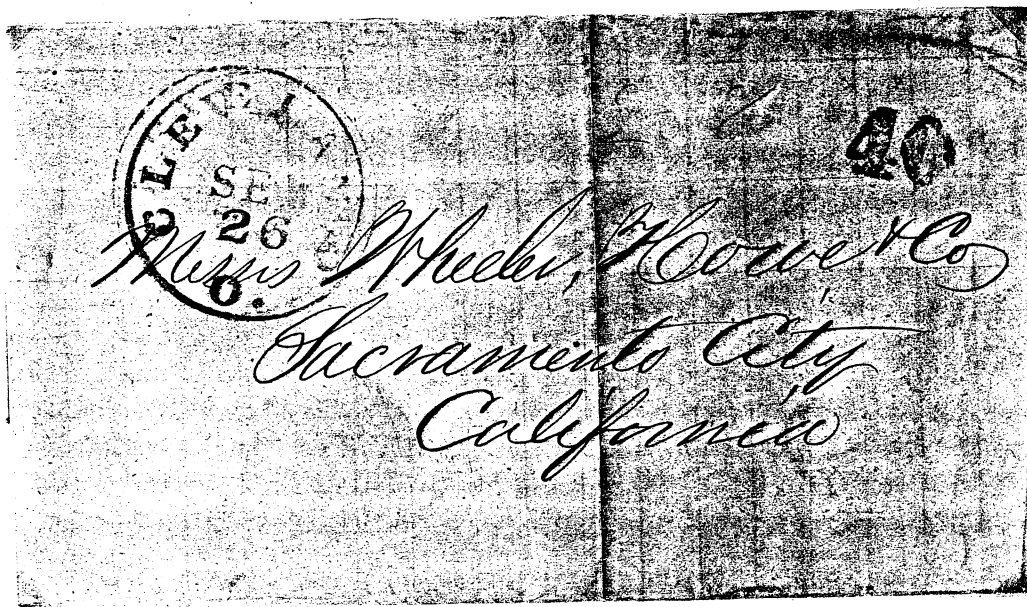 CLEVELAND
SEP
26
O.
40
Messrs Wheeler, Howe & Co,
Sacramento City
California